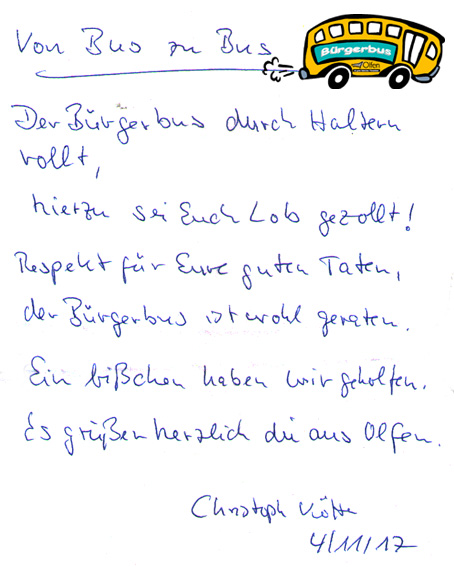 Von Bus zu Bus
Bürgerbus
Olfen
Der Bürgerbus durch Haltern
rollt,
hierzu sei Euch Lob gezollt!
Respekt für Eure guten Taten,
der Bürgerbus ist wohl geraten.
Ein bißchen haben wir geholfen.
Es grüßen herzlich die aus Olfen.
Christoph
4/11/17